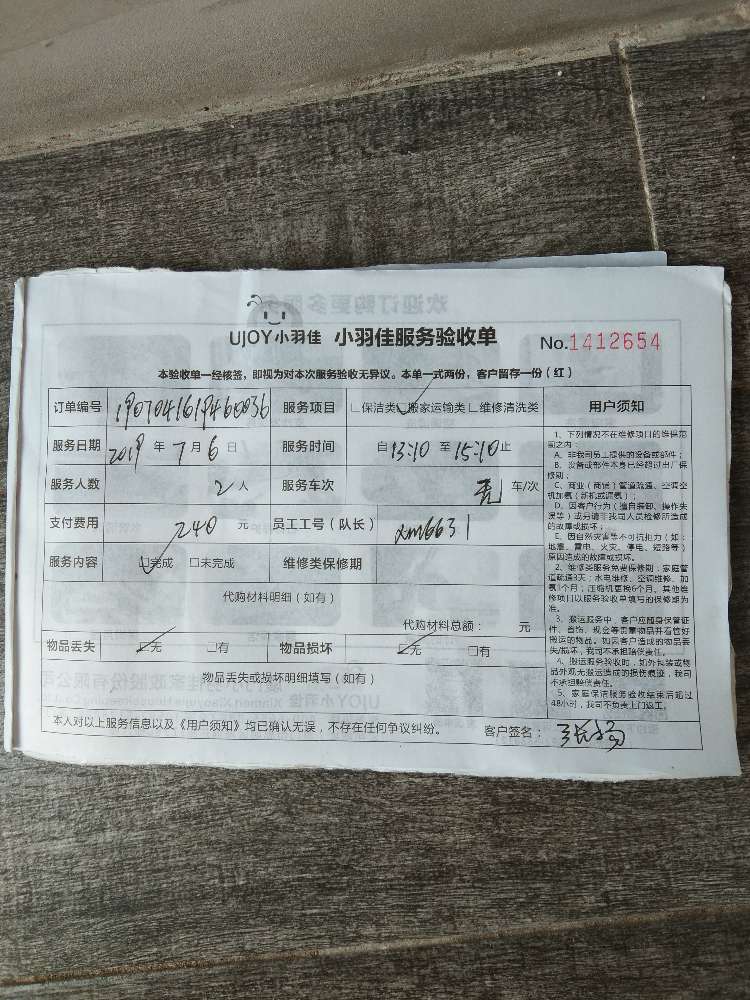 UJOY小羽佳 小羽佳服务验收单 No.1412654
本验收单一经核签，即视为对本次服务验收无异议。本单一式两份，客户留存一份（红）
订单编号 服务项目 保洁类 搬家运输类 维修清洗类
服务日期 2019 年 7 月 6 日 服务时间 自 13:10 至 15:10 止
服务人数 2 人 服务车次 壳 车/次
支付费用 240 元 员工工号（队长） xm6631
服务内容 完成 未完成 维修类保修期
代购材料明细（如有）
代购材料总额： 元
物品丢失 无 有 物品损坏 无 有
物品丢失或损坏明细填写（如有）
本人对以上服务信息以及《用户须知》均已确认无误，不存在任何争议纠纷。 客户签名：
用户须知
1、下列情况不在维修项目的维保范
围之内：
A、非我司员工提供的设备或部件；
B、设备或部件本身已经超过出厂保
修期；
C、商业（商运）管道疏通、空调空
机加氟（新机或漏氟）；
D、因客户行为（擅自装卸、操作失
误等）或分清非我司人员检修所造成
的故障或损坏；
E、因自然灾害等不可抗拒力（如：
地震、雷电、火灾、停电、短路等）
原因造成的故障或损坏。
2、维修类服务免费保修期：家庭管
道疏通3天；水电维修、空调维修、加
氟1个月；压缩机更换6个月。其他维
修项目以服务验收单填写的保修期为
准。
3、搬运服务中，客户应随身保管证
件、首饰、现金等贵重物品并看管好
搬运的物品。如因客户造成的物品丢
失/损坏，我司不承担赔偿责任。
4、搬运服务验收时，如外包装或物
品外观无搬运造成的损伤痕迹，我司
不承担赔偿责任。
5、家庭保洁服务验收结束后超过
48小时，我司不负责上门返工。